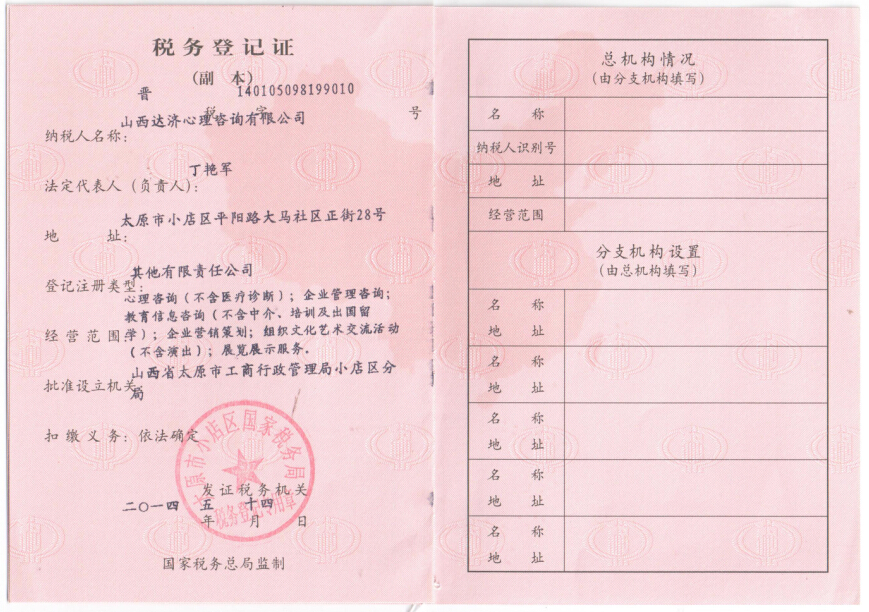 税务登记证
(副 本)
晋 140105098199010
税 字 号
山西达济心理咨询有限公司
纳税人名称:
丁艳军
法定代表人(负责人):
太原市小店区平阳路大马社区正街28号
地 址:
其他有限责任公司
登记注册类型:
心理咨询(不含医疗诊断);企业管理咨询;
教育信息咨询(不含中介、培训及出国留
经营范围:学);企业营销策划;组织文化艺术交流活动
(不含演出);展览展示服务.
山西省太原市工商行政管理局小店区分
批准设立机关:局
扣缴义务:依法确定
太原市小店区国家税务局
税务登记专用章
发证税务机关
二〇一四 五 十四
年 月 日
国家税务总局监制
总机构情况
(由分支机构填写)
名 称
纳税人识别号
地 址
经营范围
分支机构设置
(由总机构填写)
名 称
地 址
名 称
地 址
名 称
地 址
名 称
地 址
名 称
地 址